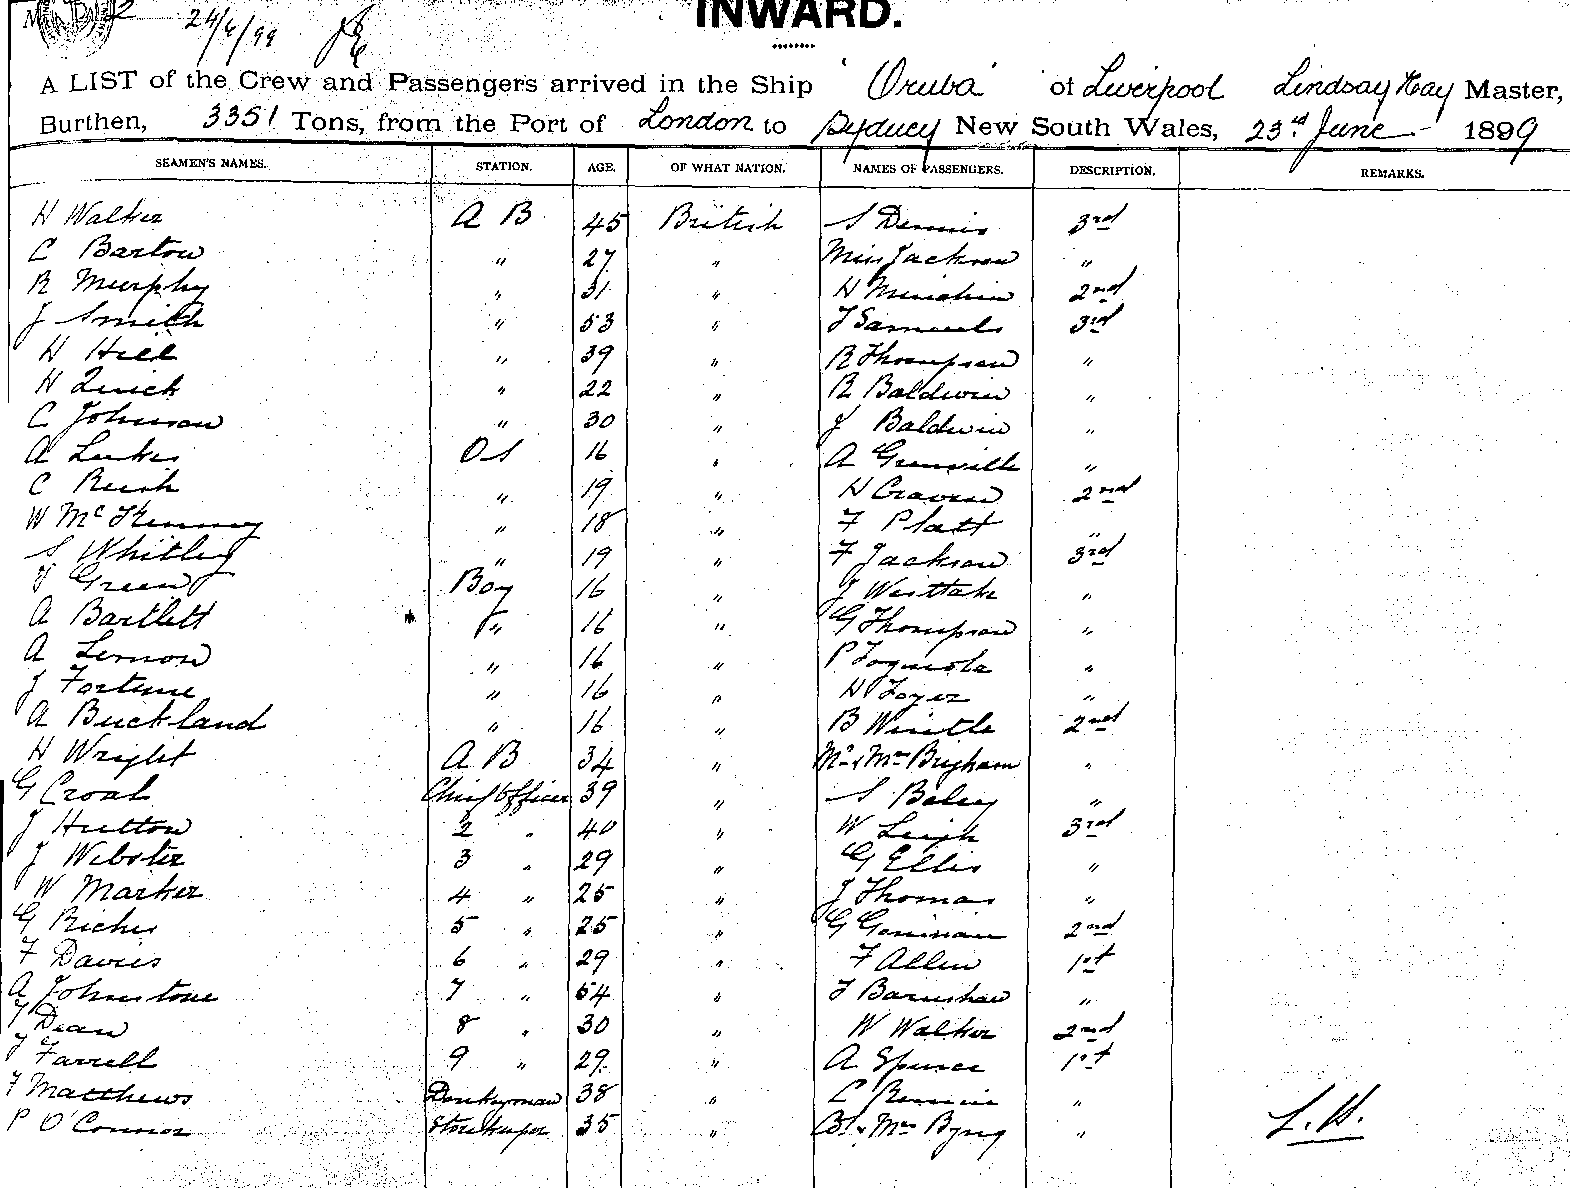 24/6/99
INWARD.
A LIST of the Crew and Passengers arrived in the Ship 'Oruba' of Liverpool Lindsay Kay Master,
Burthen, 3351 Tons, from the Port of London to Sydney New South Wales, 23rd June 1899
SEAMEN'S NAMES. STATION. AGE. OF WHAT NATION. NAMES OF PASSENGERS. DESCRIPTION. REMARKS.
H Walker A B 45 British S Dennis 3rd
C Barton " 27 " Miss Jackson "
R Murphy " 31 " H 2nd
J Smith " 53 " J Samuels 3rd
H Hill " 39 " R Thompson "
H Quick " 22 " R Baldwin "
C Johnson " 30 " J Baldwin "
A Lukes OS 16 " A Grenville "
C Rush " 19 " H Craven 2nd
W " 18 " F Platt "
S Whitley " 19 " F Jackson 3rd
T Green Boy 16 " J "
A Bartlett " 16 " G Thompson "
A Lemon " 16 " P "
J Fortune " 16 " H "
A Buckland " 16 " B Wintle 2nd
H Wright A B 34 " Mr & Mrs Brigham "
G Croal Chief Officer 39 " S "
J Hutton 2 " 40 " W Leigh 3rd
J Webster 3 " 29 " G Ellis "
W Marker 4 " 25 " J Thomas "
G Riches 5 " 25 " G 2nd
F Davies 6 " 29 " F Allen 1st
A Johnstone 7 " 54 " J "
J Dean 8 " 30 " W Walker 2nd
J Farrell 9 " 29 " A Spence 1st
F Matthews Donkeyman 38 " C "
P O'Connor Storekeeper 35 " Col & Mrs Byng "
L.K.